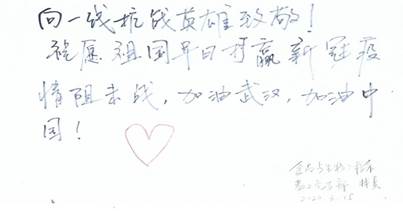 向一线抗战英雄致敬！
祝愿祖国早日打赢新冠疫
情阻击战，加油武汉，加油中
国！
2020.3.15